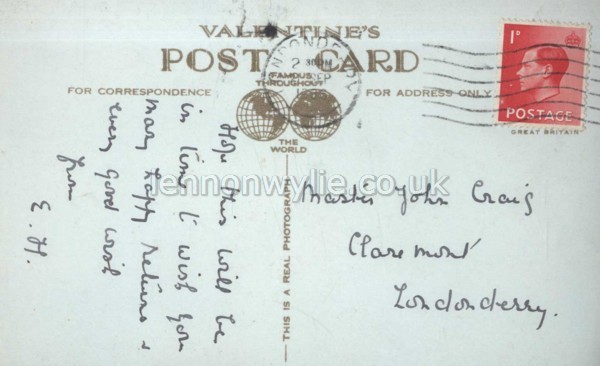 VALENTINE'S
POST CARD
FAMOUS
THROUGHOUT
THE
WORLD
FOR CORRESPONDENCE
FOR ADDRESS ONLY
LONDONDERRY
2 30PM
SEP
1D
POSTAGE
GREAT BRITAIN
THIS IS A REAL PHOTOGRAPH
Hope this will be
in time to wish you
many happy returns &
every good wish
from
E. H.
Master John Craig
Claremont
Londonderry.
lennonwylie.co.uk